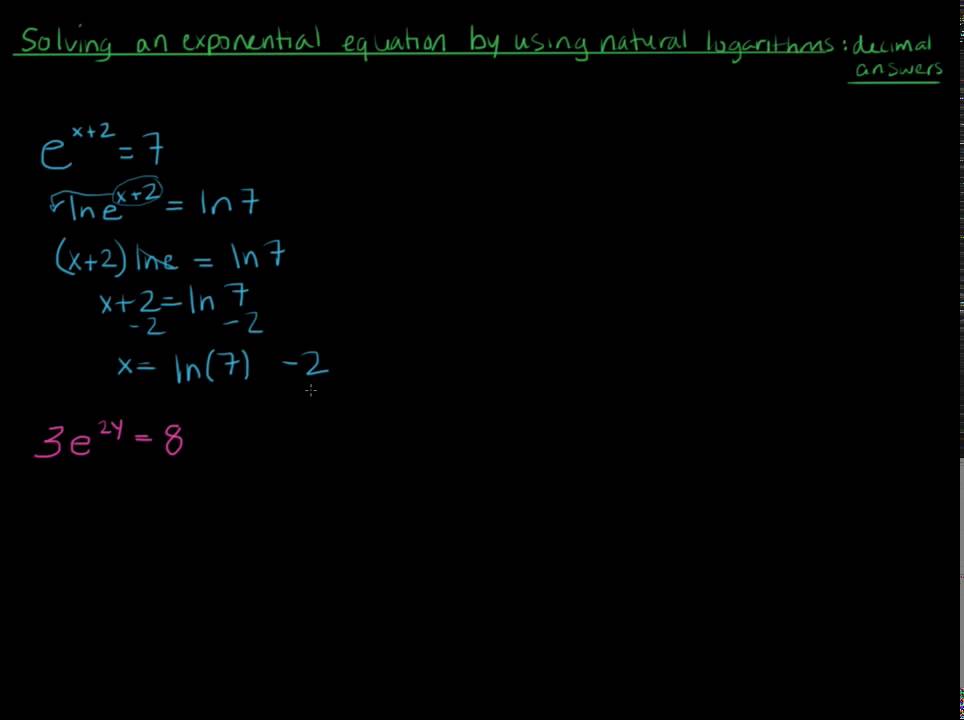 Solving an exponential equation by using natural logarithms: decimal
answers
e^{x+2} = 7
ln e^{x+2} = ln 7
(x+2) ln e = ln 7
x+2 = ln 7
-2 -2
x = ln(7) -2
3e^{2y} = 8